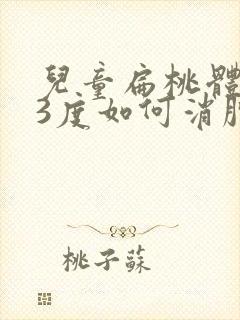 兒童扁桃體
3度如何消腫
桃子蘇